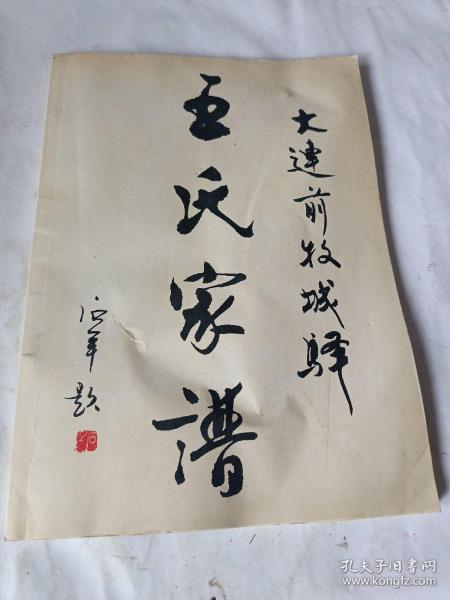 大連前牧城驿
王氏家谱
题
孔夫子旧书网
www.kongfz.com